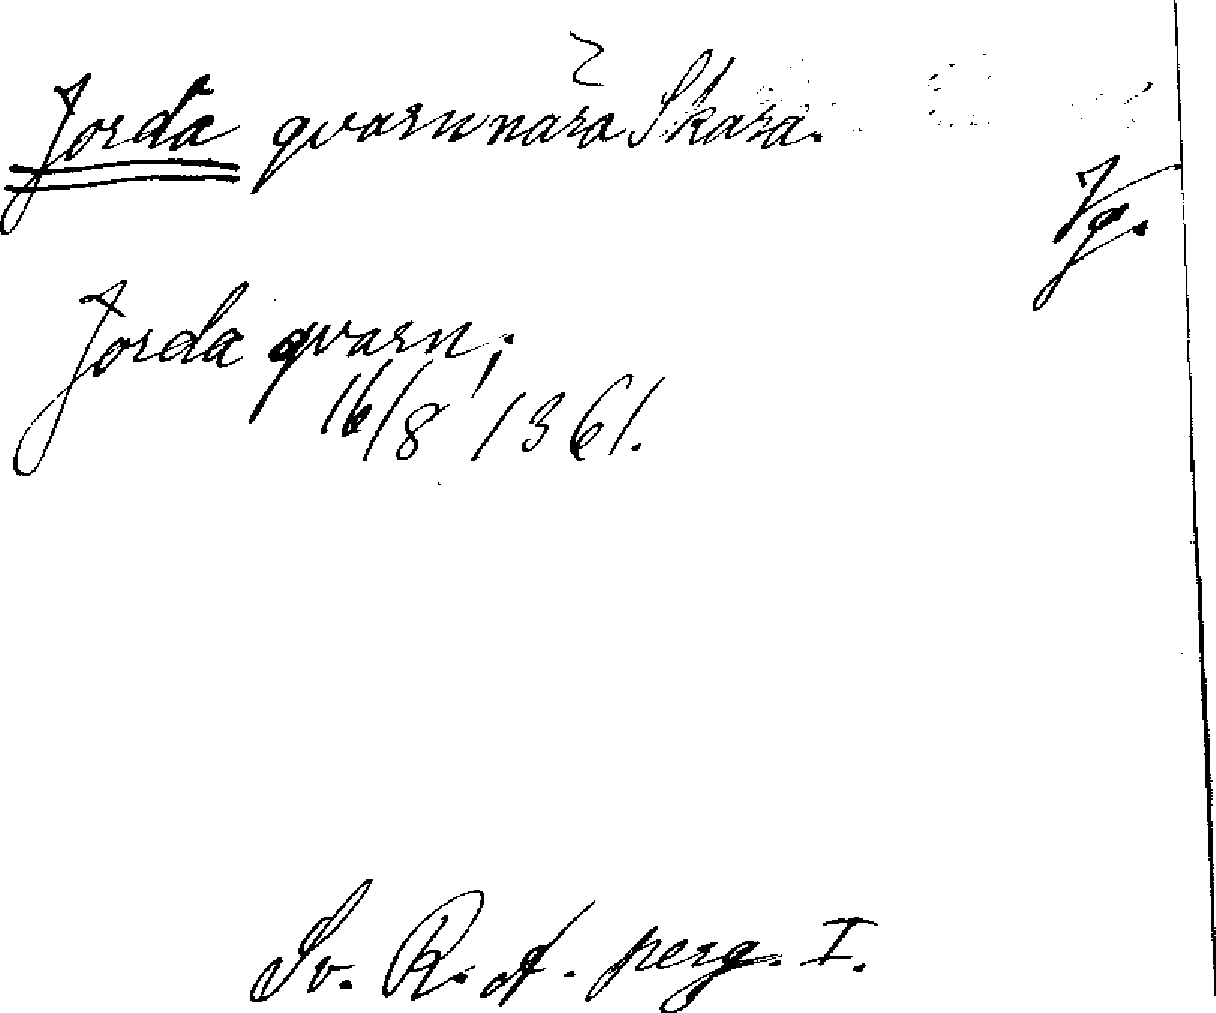 Jorda qvarn nära Skara.
Vg.
Jorda qvarn,
16/8 1361.
Sv. R. A. perg. I.